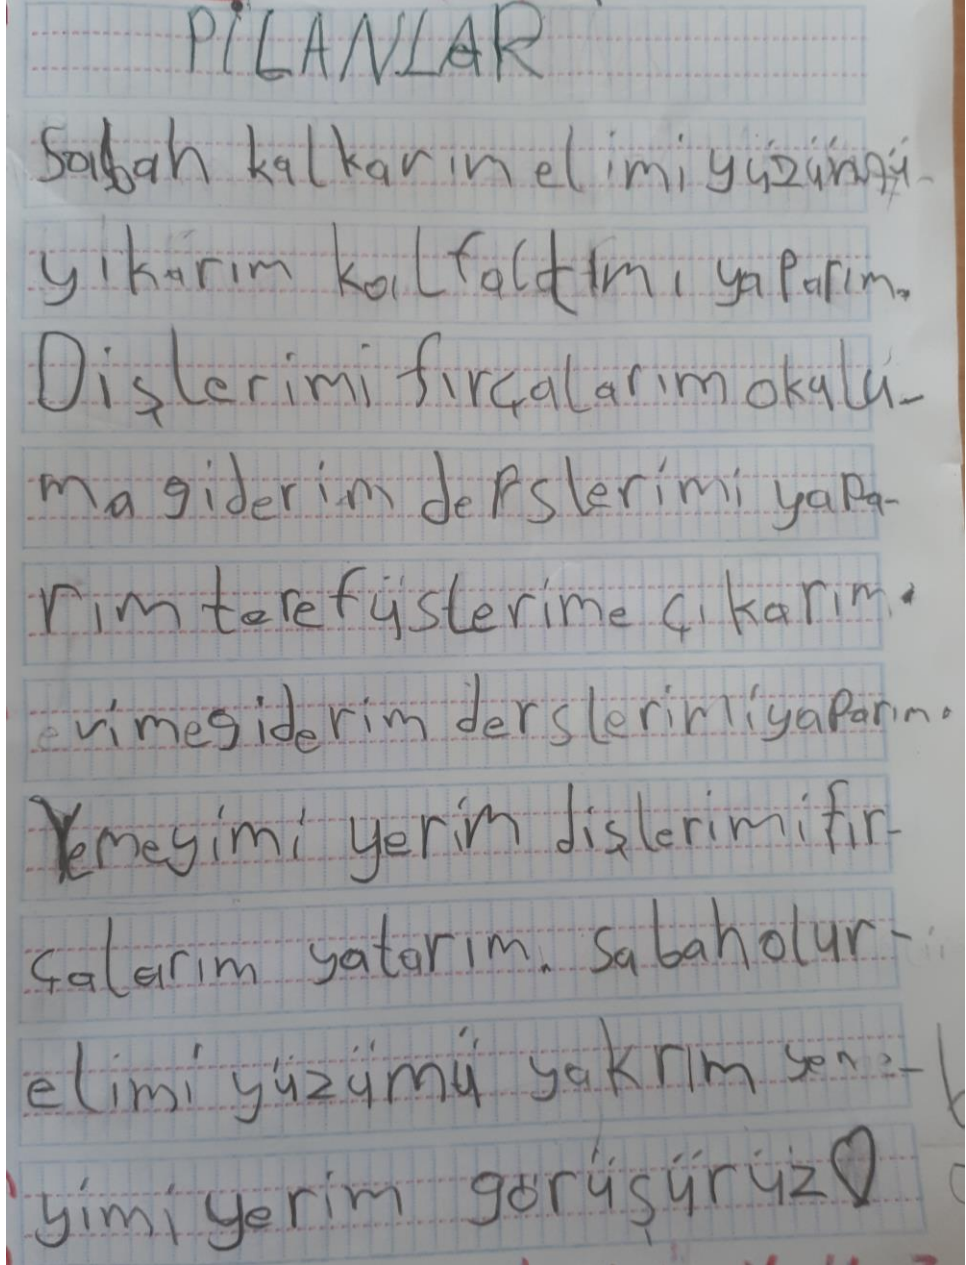 PİLANLAR
Sabah kalkarım elimi yüzümü-
yıkarım kalfaltımı yaparım.
Dişlerimi fırçalarım okulu-
ma giderim derslerimi yapa-
rım terefüslerime çıkarım.
evime giderim derslerimi yaparım.
Yemeyimi yerim dişlerimi fır-
çalarım yatarım. Sabah olur-
elimi yüzümü yakrım yeme-
yimi yerim görüşürüz♡